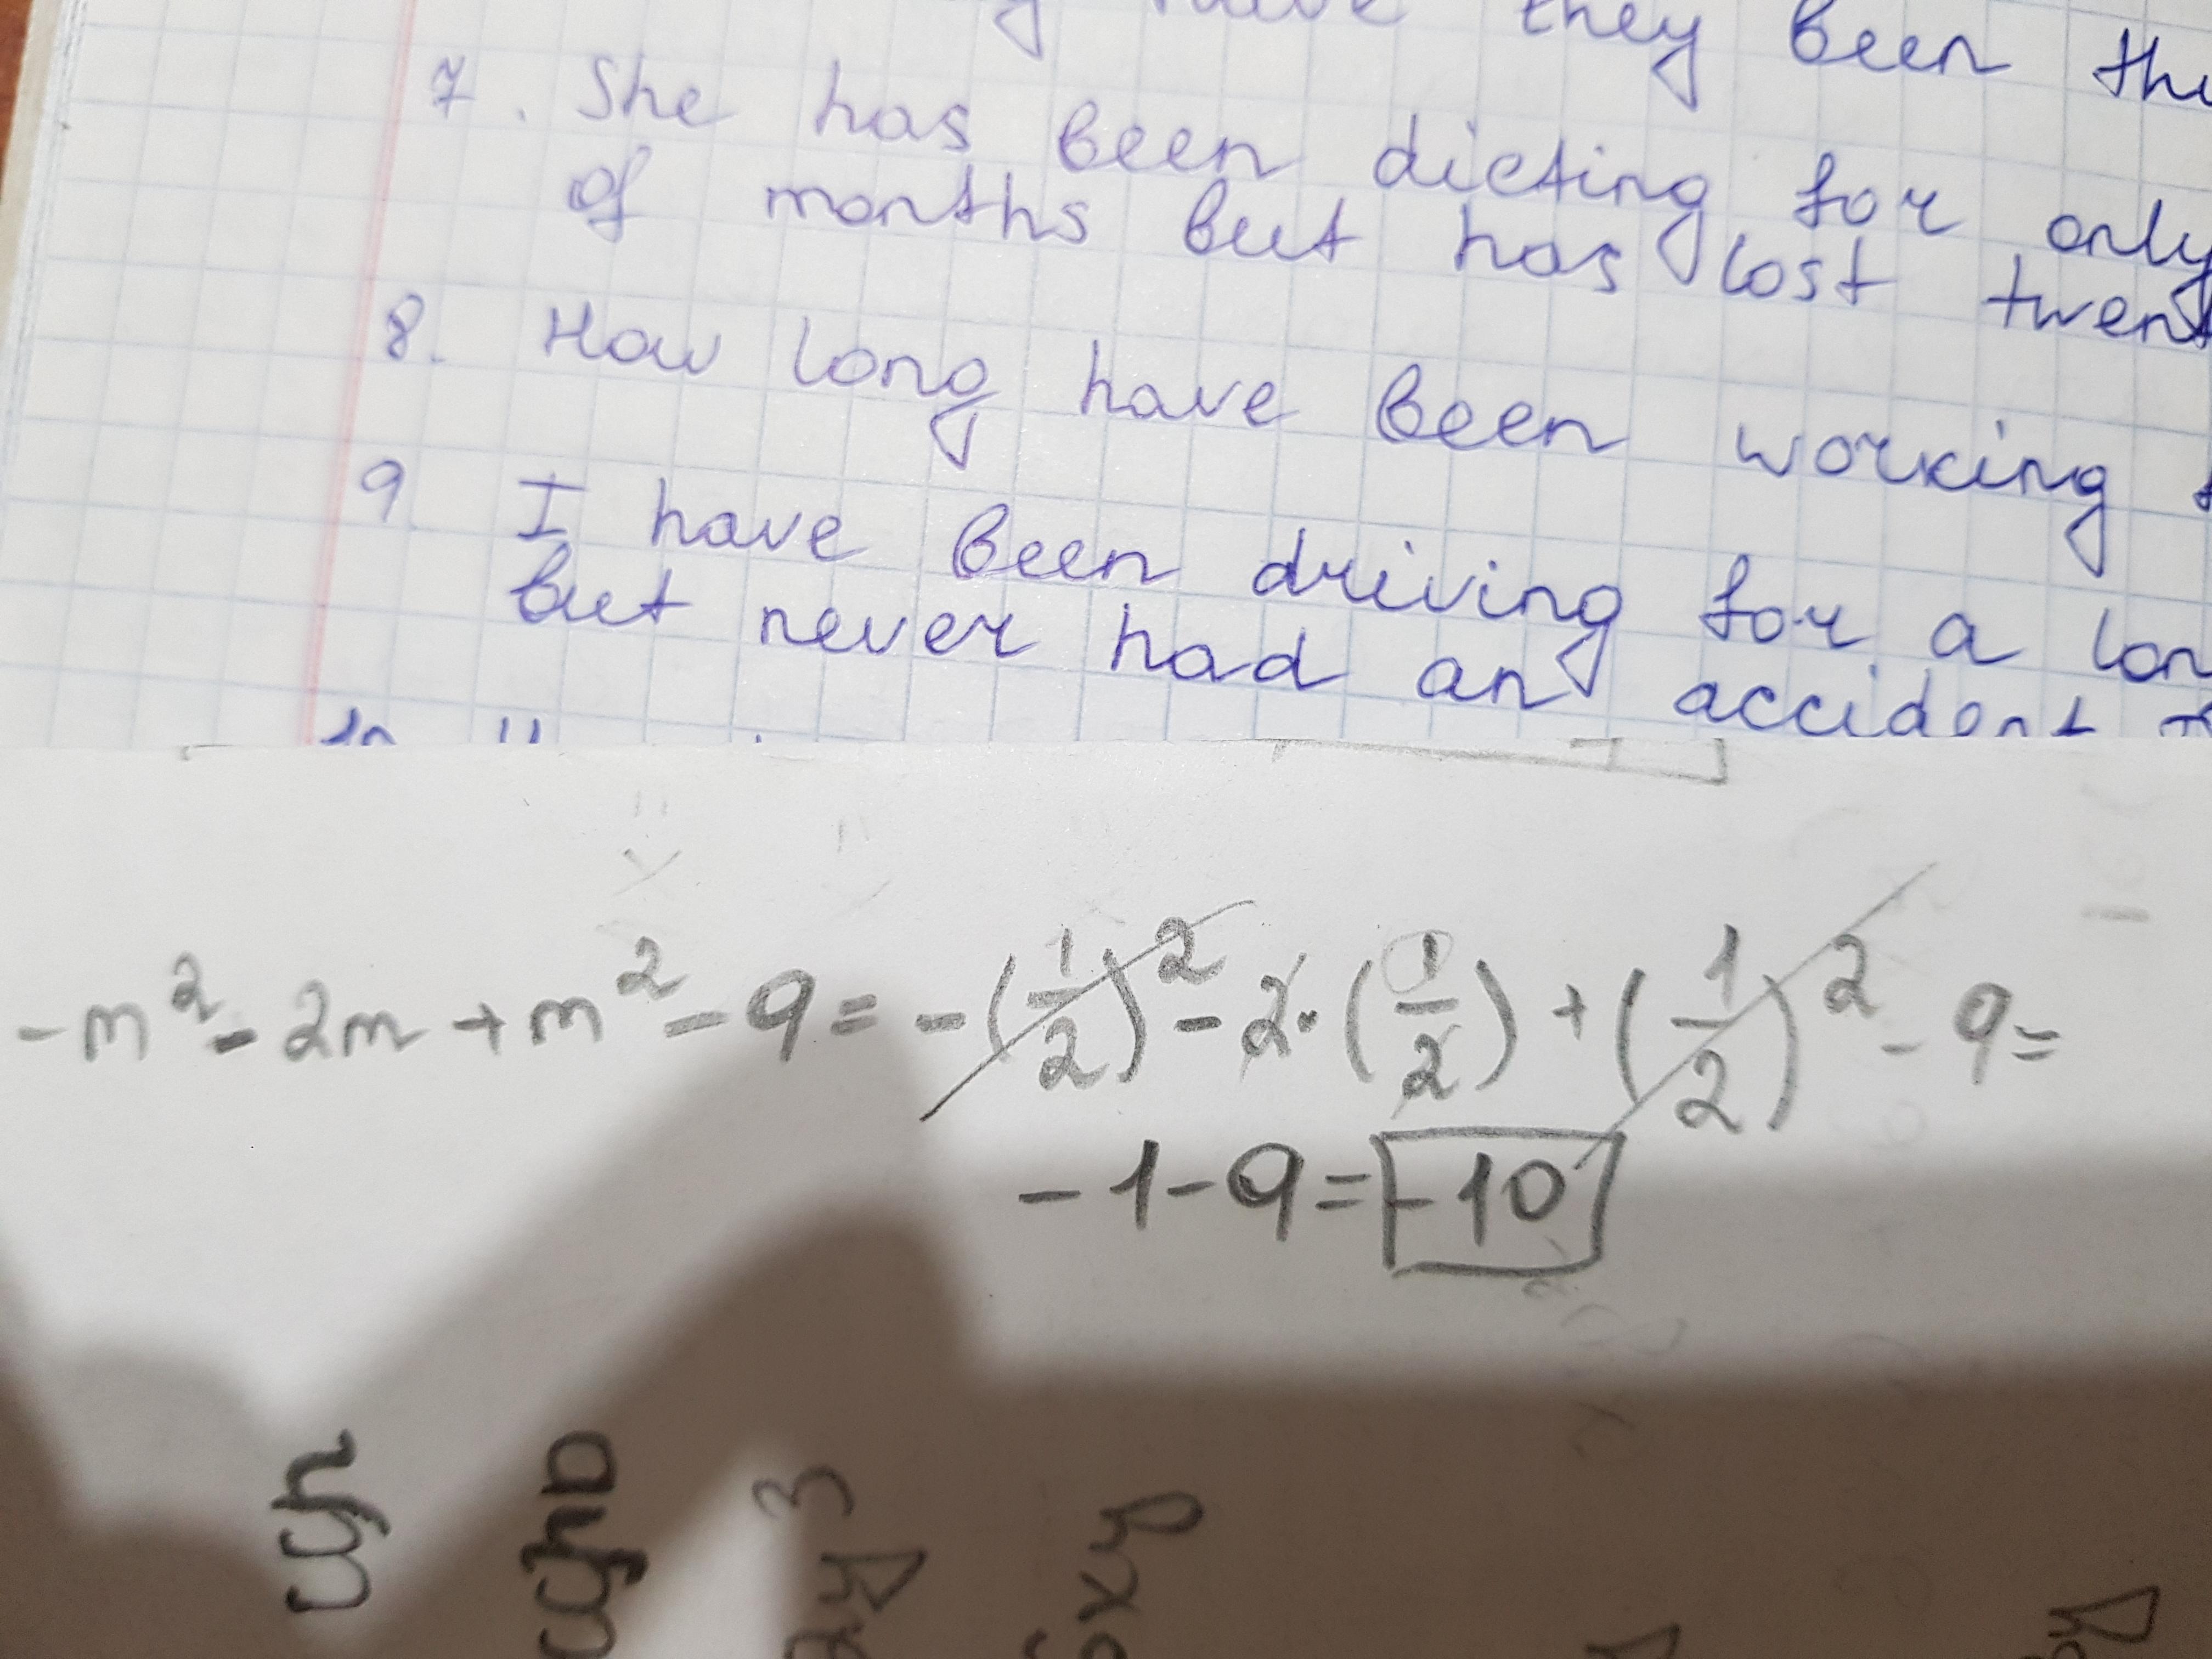 have they been
7. She has been dieting for only
of months but has lost
8. How long have been working
9. I have been driving for a
but never had an accident
-m² - 2m + m² - 9 = -(1/2)² - 2·(1/2) + (1/2)² - 9 =
-1-9=-10